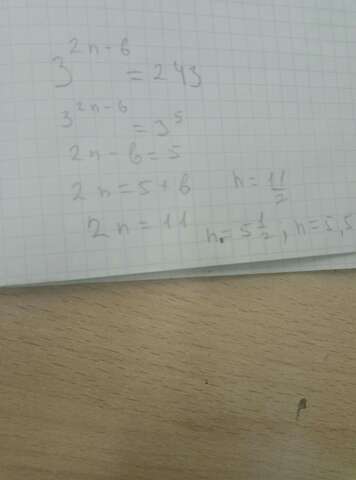 3^{2n-6} = 243
3^{2n-6} = 3^5
2n - 6 = 5
2n = 5 + 6 n = \frac{11}{2}
2n = 11 n = 5\frac{1}{2}, n = 5,5